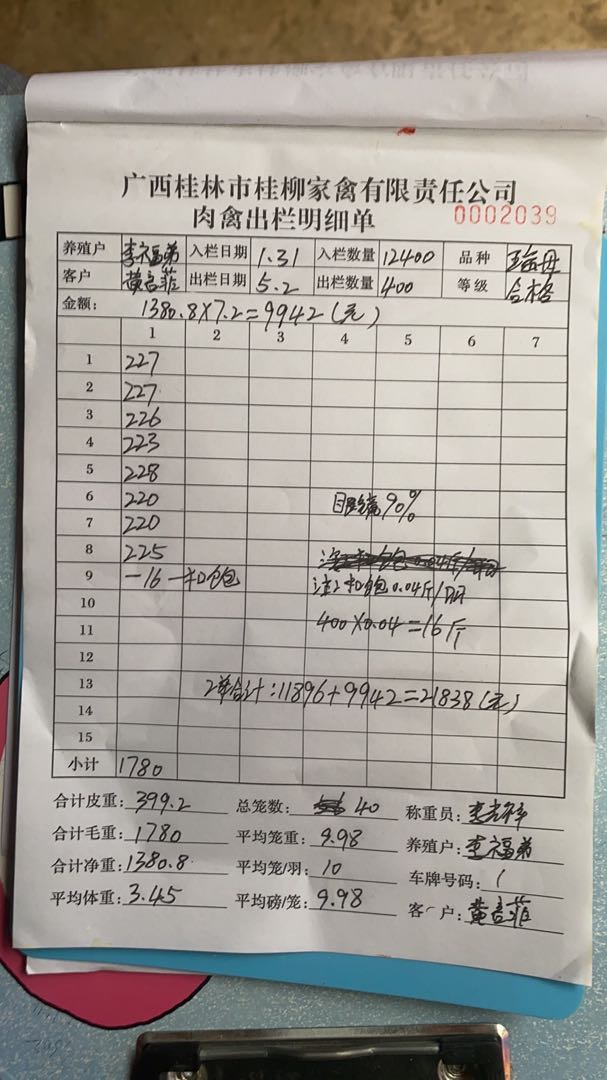 广西桂林市桂柳家禽有限责任公司
肉禽出栏明细单 0002039
养殖户 李福弟 入栏日期 1.31 入栏数量 12400 品种
客户 黄言菲 出栏日期 5.2 出栏数量 400 等级 合格
金额: 1380.8×7.2=9942(元)
1 2 3 4 5 6 7
1 227
2 227
3 226
4 223
5 228
6 220 90%
7 220
8 225
9 -16 扣饱 注:扣饱0.04斤/
10
11 400×0.04=16斤
12
13 2单合计:11896+9942=21838(元)
14
15
小计 1780
合计皮重: 399.2 总笼数: 40 称重员:
合计毛重: 1780 平均笼重: 9.98 养殖户: 李福弟
合计净重: 1380.8 平均笼/羽: 10 车牌号码: 1
平均体重: 3.45 平均磅/笼: 9.98 客户: 黄言菲